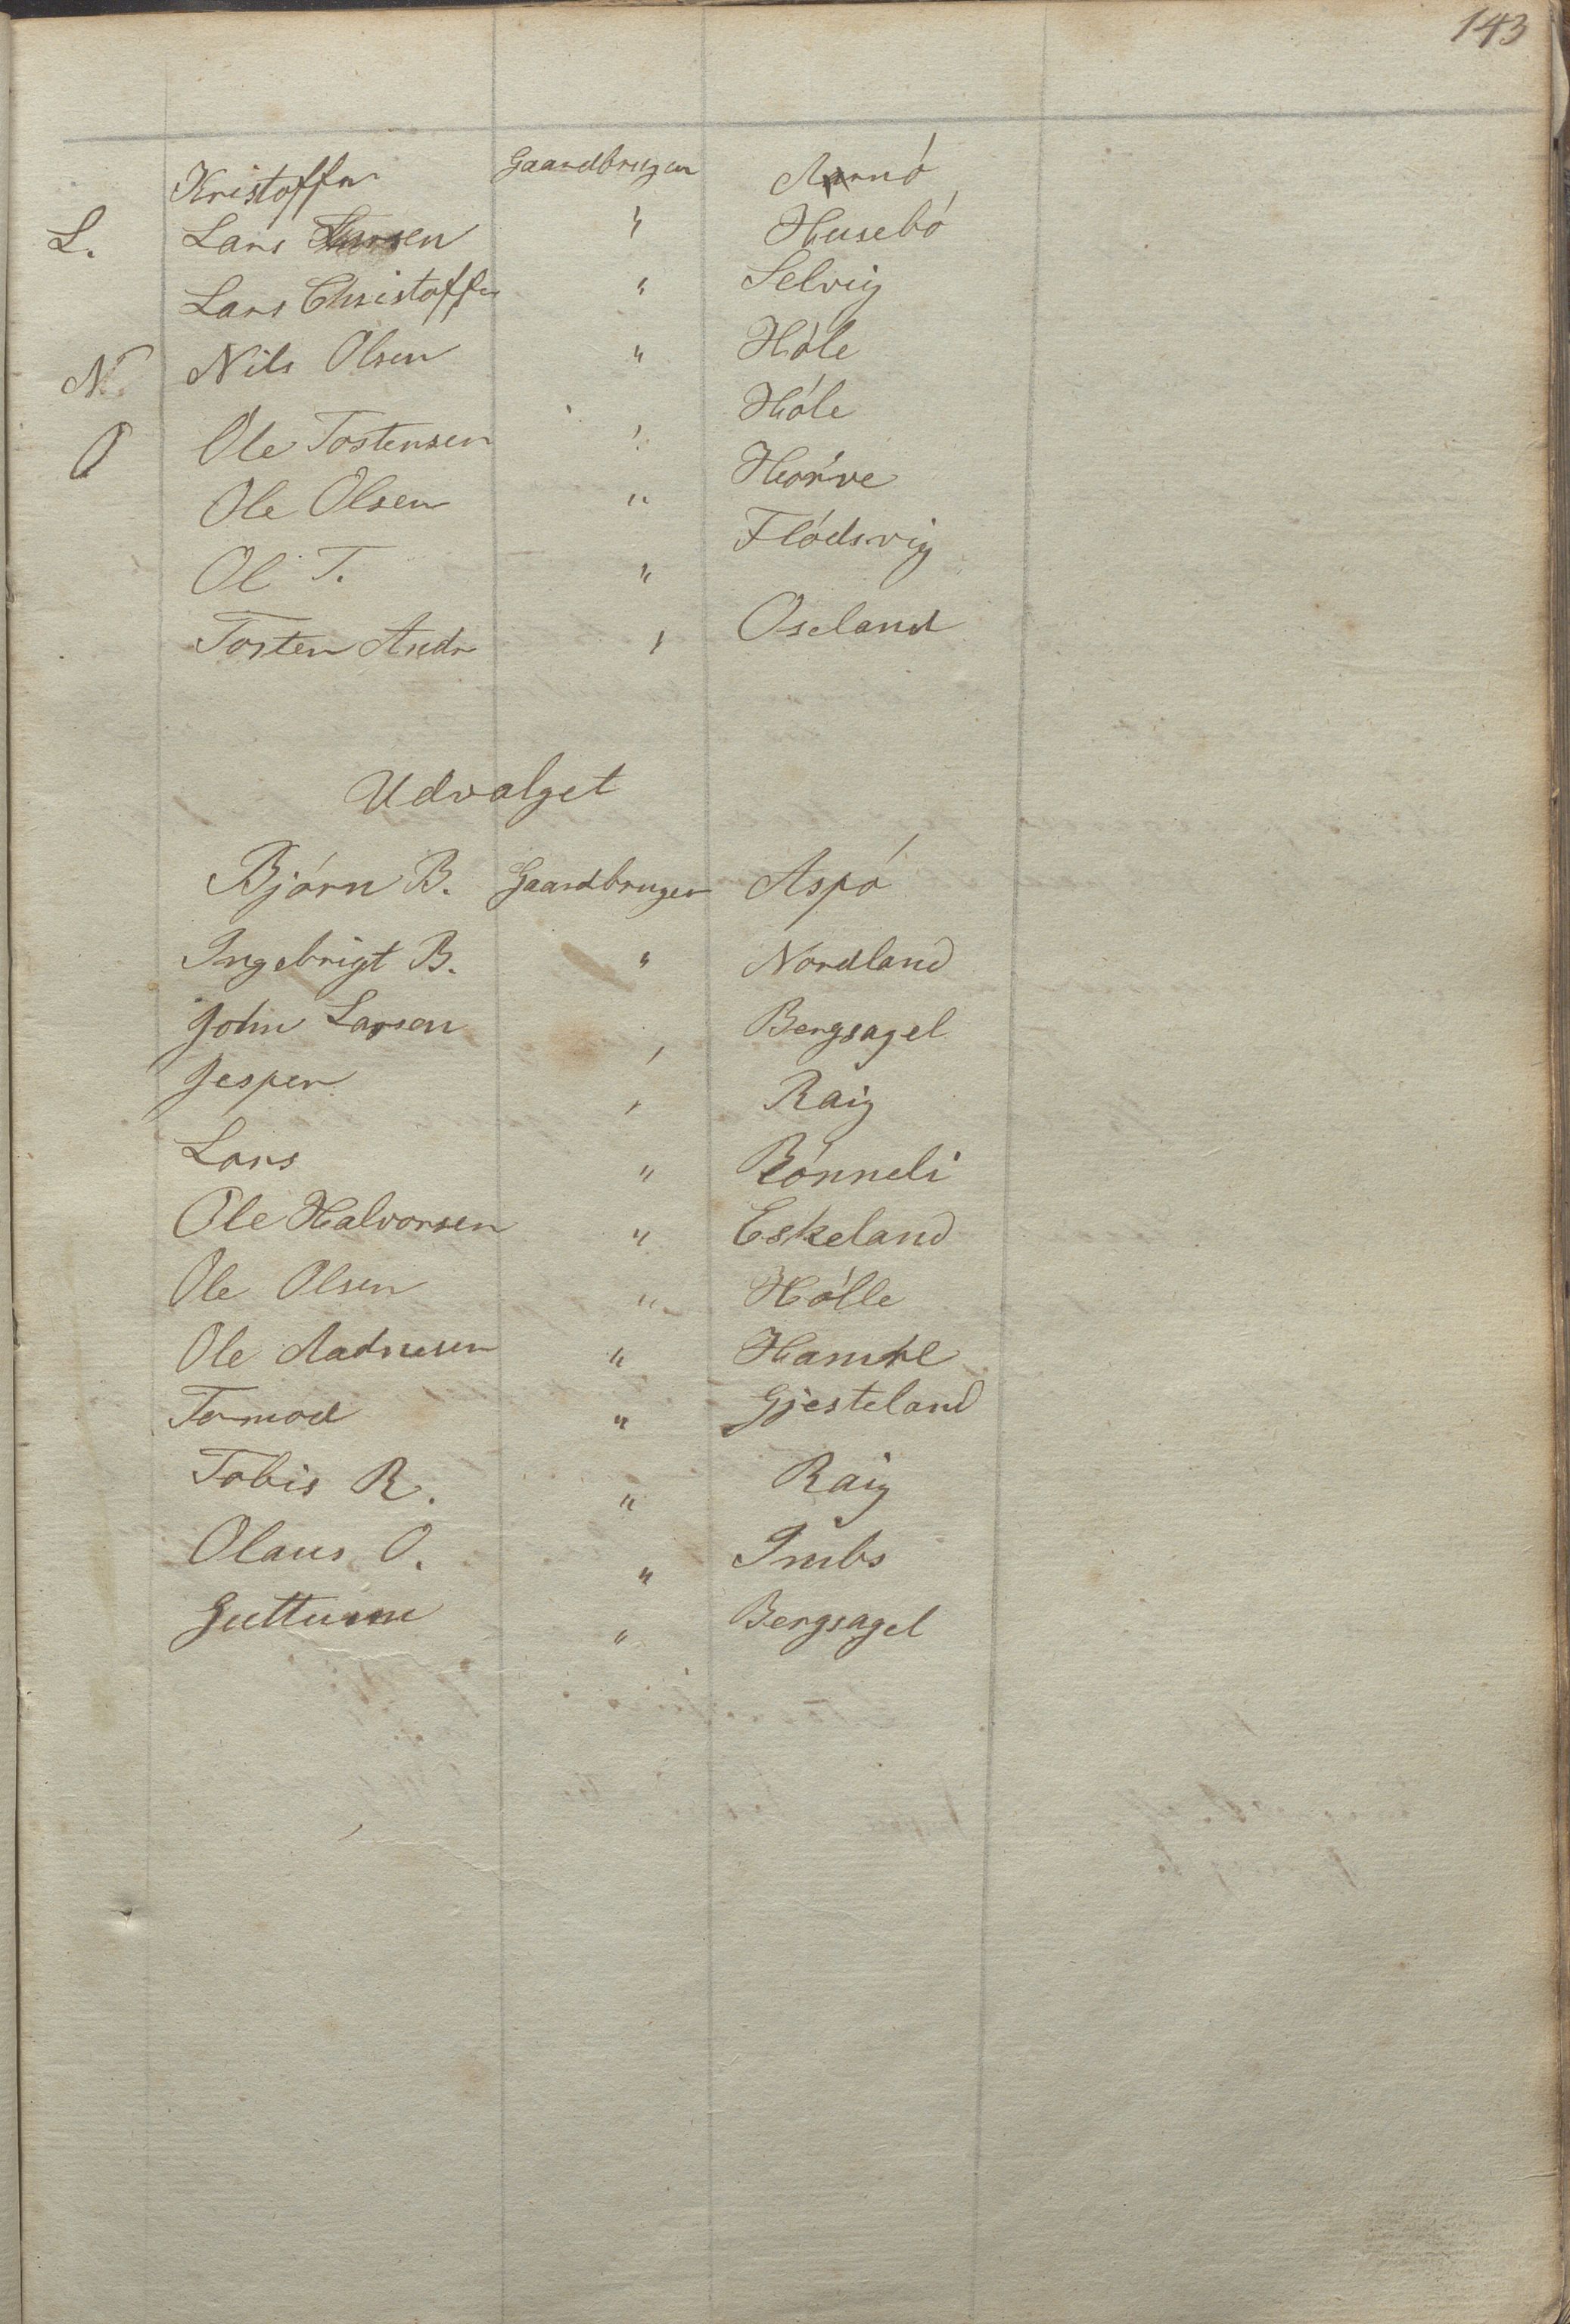 143
Kristoffer Gaardbruger Arnó
L. Lars Larsen " Husebó
Lars Christoffer " Selvig
N. Nils Olsen " Hóle
O Ole Tostensen " Hóle
Ole Olsen " Horve
Ol T. " Flódsvig
Tosten Andr " Oseland
Udvalget
Bjórn B. Gaardbruger Aspó
Ingebrigt B. " Nordland
John Larsen " Bergsagel
Jesper " Raig
Lars " Rónneli
Ole Halvorsen " Eskeland
Ole Olsen " Hólle
Ole Aadnesen " Hamre
Tormod " Gjesteland
Tobis R. " Raig
Olaus O. " Imbs
Gutturm " Bergsagel